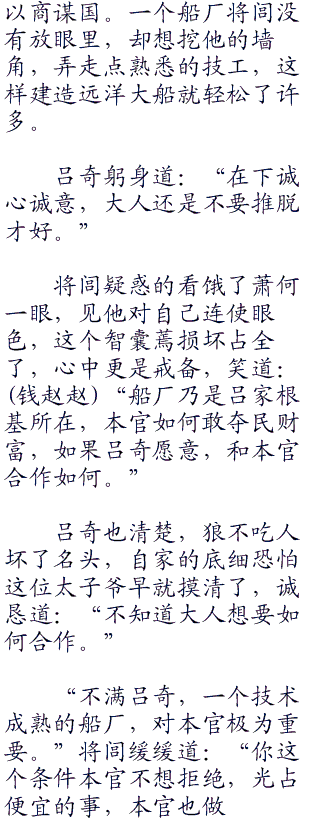 以商谋国。一个船厂将闾没
有放眼里，却想挖他的墙
角，弄走点熟悉的技工，这
样建造远洋大船就轻松了许
多。
吕奇躬身道：“在下诚
心诚意，大人还是不要推脱
才好。”
将闾疑惑的看饿了萧何
一眼，见他对自己连使眼
色，这个智囊蔫损坏占全
了，心中更是戒备，笑道：
(钱赵赵)“船厂乃是吕家根
基所在，本官如何敢夺民财
富，如果吕奇愿意，和本官
合作如何。”
吕奇也清楚，狼不吃人
坏了名头，自家的底细恐怕
这位太子爷早就摸清了，诚
恳道：“不知道大人想要如
何合作。”
“不满吕奇，一个技术
成熟的船厂，对本官极为重
要。”将闾缓缓道：“你这
个条件本官不想拒绝，光占
便宜的事，本官也做